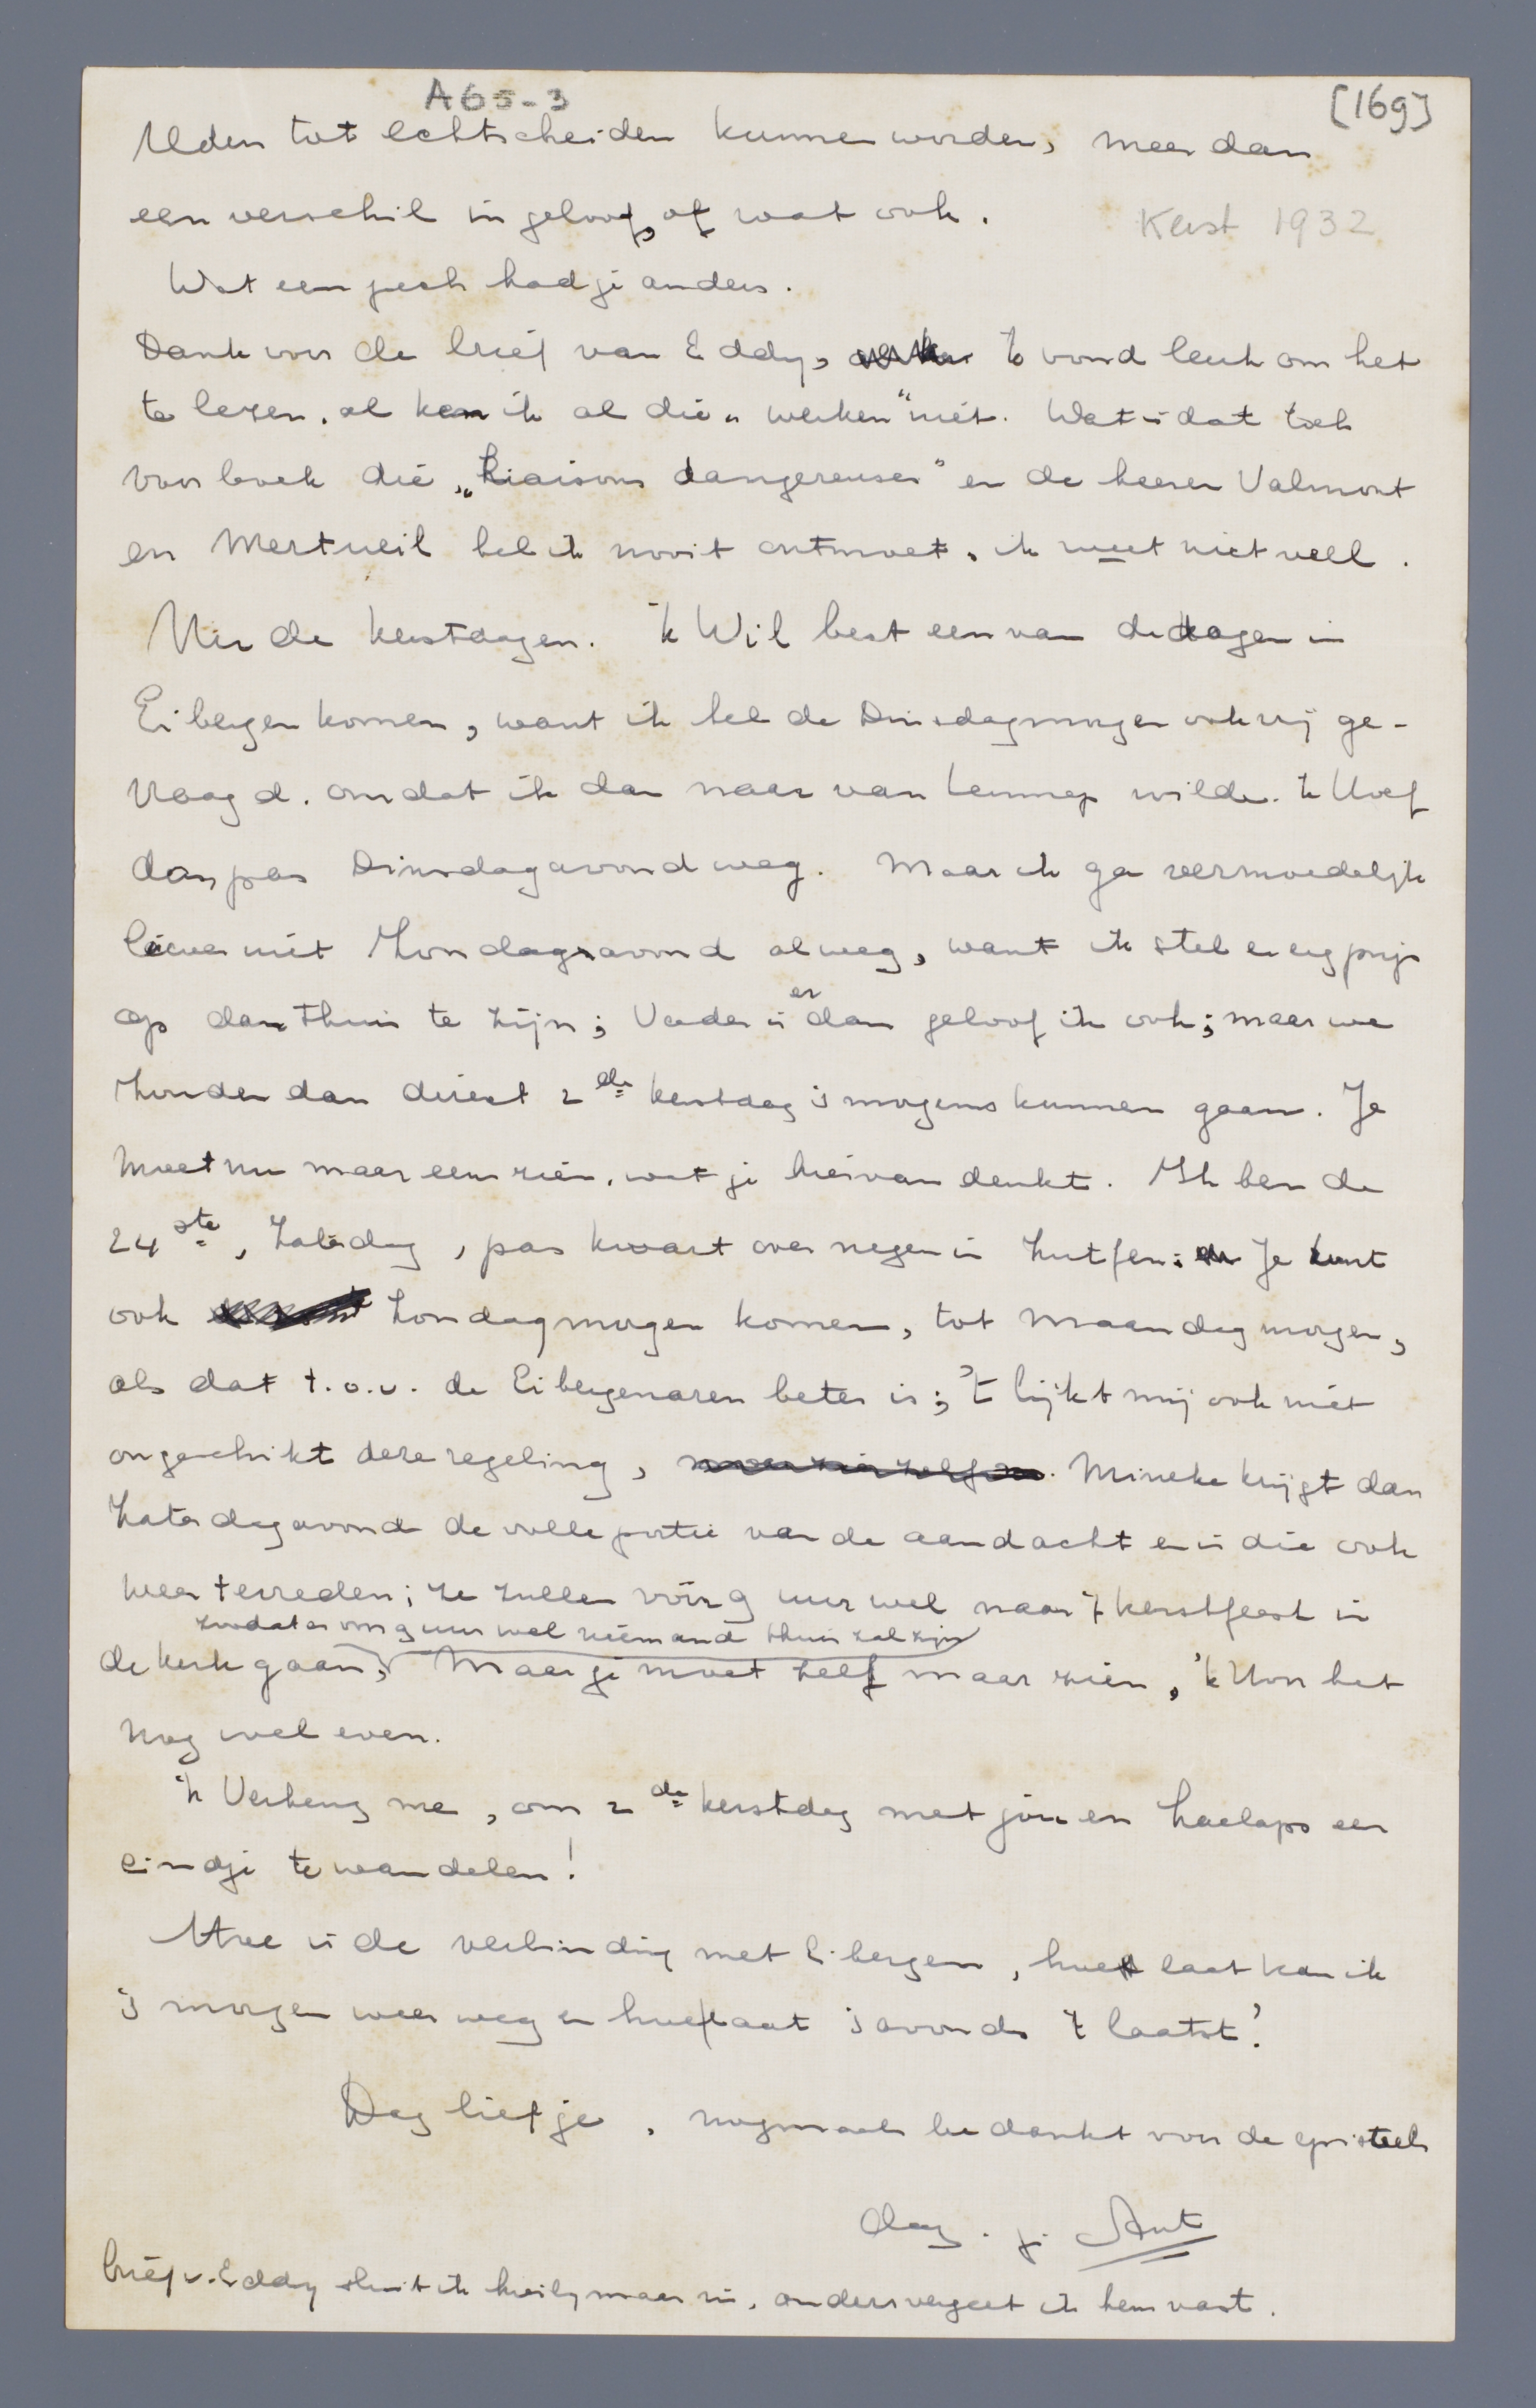 A65-3
[169]
reden tot echtscheiden kunnen worden, meer dan
een verschil in geloof, of wat ook.
Kerst 1932
Wat een pech had je anders.
Dank voor de brief van Eddy, 'k vond leuk om het
te lezen, al ken ik al die „werken" niet. Wat is dat toch
voor boek die „Liaisons dangereuses" en de heeren Valmont
en Merteuil heb ik nooit ontmoet, ik weet niet veel.
Nu de kerstdagen. 'k Wil best een van de dagen in
Eibergen komen, want ik heb de Dinsdagmorgen ook vrij ge-
vraagd, omdat ik dan naar van Lennep wilde. 'k Hoef
dan pas Dinsdagavond weg. Maar ik ga vermoedelijk
liever niet Zondagsavond al weg, want ik stel er erg prijs
op dan thuis te zijn; Vader is er dan geloof ik ook; maar we
zouden dan direct 2de kerstdag 's morgens kunnen gaan. Je
moet nu maar eens zien, wat je hiervan denkt. Ik ben de
24ste, Zaterdag, pas kwart over negen in Zutfen; Je kunt
ook Zondagmorgen komen, tot Maandagmorgen,
als dat t.o.v. de Eibergenaren beter is; 't lijkt mij ook niet
ongeschikt deze regeling, Mineke krijgt dan
Zaterdagavond de volle portie van de aandacht en is die ook
weer tevreden; ze zullen vóór 9 uur wel naar 't kerstfeest in
zoodat er om 9 uur wel niemand thuis zal zijn
de kerk gaan, Maar je moet zelf maar zien, 'k hoor het
nog wel even.
'k Verheug me, om 2de kerstdag met jou en Laelaps een
eindje te wandelen!
Hoe is de verbinding met Eibergen, hoe laat kan ik
's morgen weer weg en hoe laat 's avonds 't laatst?
Dag liefje, nogmaals bedankt voor de epistels
dag. j. Ant
brief v. Eddy sluit ik hierbij maar in, anders vergeet ik hem vast.